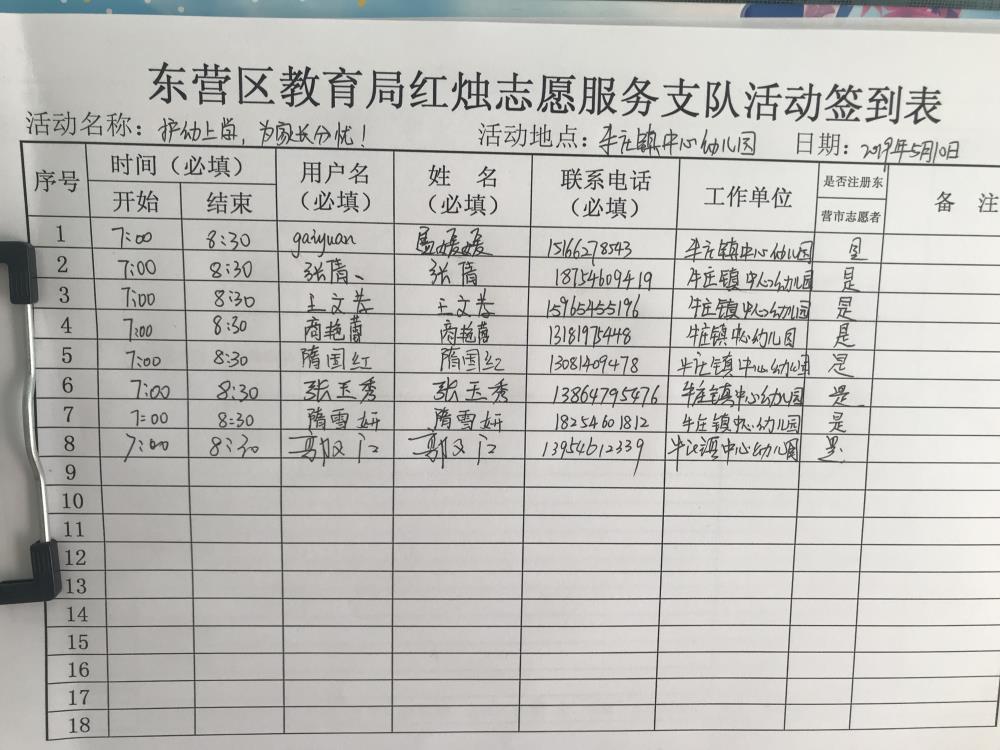 东营区教育局红烛志愿服务支队活动签到表
活动名称：护幼上学，为家长分忧！ 活动地点：牛庄镇中心幼儿园 日期：2019年5月10日
序号 时间（必填） 用户名（必填） 姓 名（必填） 联系电话（必填） 工作单位 是否注册东营市志愿者 备 注
开始 结束
1 7:00 8:30 gaiyuan 媛媛 15166278543 牛庄镇中心幼儿园 是
2 7:00 8:30 张倩 张倩 18754609419 牛庄镇中心幼儿园 是
3 7:00 8:30 王文 王文 15965455196 牛庄镇中心幼儿园 是
4 7:00 8:30 商艳 商艳 13181975448 牛庄镇中心幼儿园 是
5 7:00 8:30 隋国红 隋国红 13081409478 牛庄镇中心幼儿园 是
6 7:00 8:30 张玉秀 张玉秀 13864795476 牛庄镇中心幼儿园 是
7 7:00 8:30 隋雪妍 隋雪妍 18254601812 牛庄镇中心幼儿园 是
8 7:00 8:30 13954612339 牛庄镇中心幼儿园 是
9
10
11
12
13
14
15
16
17
18